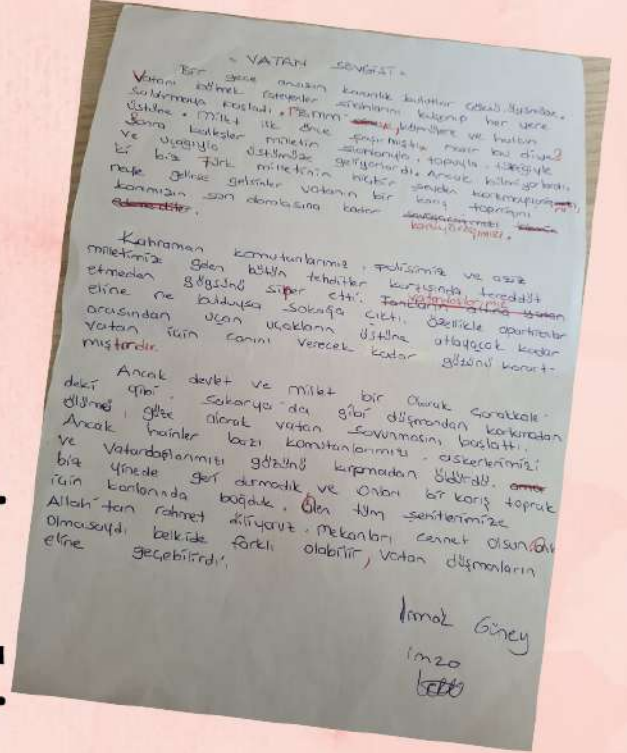 - VATAN SEVGİSİ -
Bir gece ansızın karanlık bulutlar çöktü üstümüze.
Vatanı bölmek isteyenler silahlarını kuşanıp her yere
saldırmaya başladı. komutlere ve halkın
üstüne. Millet ilk önce şaşırmıştı nasır bu diye?
Sonra kalleşler milletin silahlarıyla, topuyla, tüfeğiyle
ve uçağıyla üstümüze geliyorlardı. Ancak bilmiyorlardı
ki biz Türk milletinin hiçbir şeyden korkmayacağını,
neye gelirse gelsinler vatanın bir karış toprağını
kanımızın son damlasına kadar
koruyacağımızı.
Kahraman komutanlarımız, polisimiz ve aziz
milletimiz gelen bütün tehditler karşısında tereddüt
etmeden göğsünü siper etti. vatandaşlarımız
eline ne bulduysa sokağa çıktı. Özellikle apartmanlar
arasından uçan uçakların üstüne atlayacak kadar
vatan için canını verecek kadar gözünü karart-
mışlardır.
Ancak devlet ve millet bir olarak Çanakkale-
deki gibi, Sakarya'da gibi düşmandan korkmadan
ölümü göze alarak vatan savunmasını başlattı.
Ancak hainler bazı komutanlarımızı, askerlerimizi
ve vatandaşlarımızı gözünü kırpmadan öldürdü.
biz yinede geri durmadık ve onları bir karış toprak
için kanlarında boğduk. Ölen tüm şehitlerimize
Allah'tan rahmet diliyoruz. Mekanları cennet olsun.
Olmasaydı belkide farklı olabilir, vatan düşmanların
eline geçebilirdi.
Irmak Güney
imza